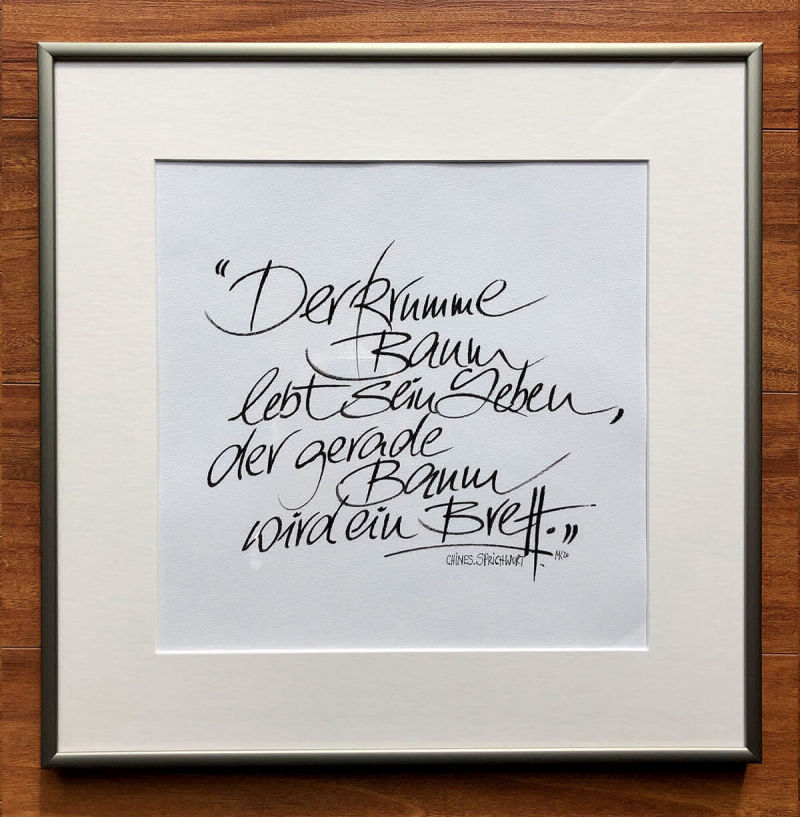 "Der krumme
Baum
lebt sein Leben,
der gerade
Baum
wird ein Brett."
CHINES. SPRICHWORT MK20